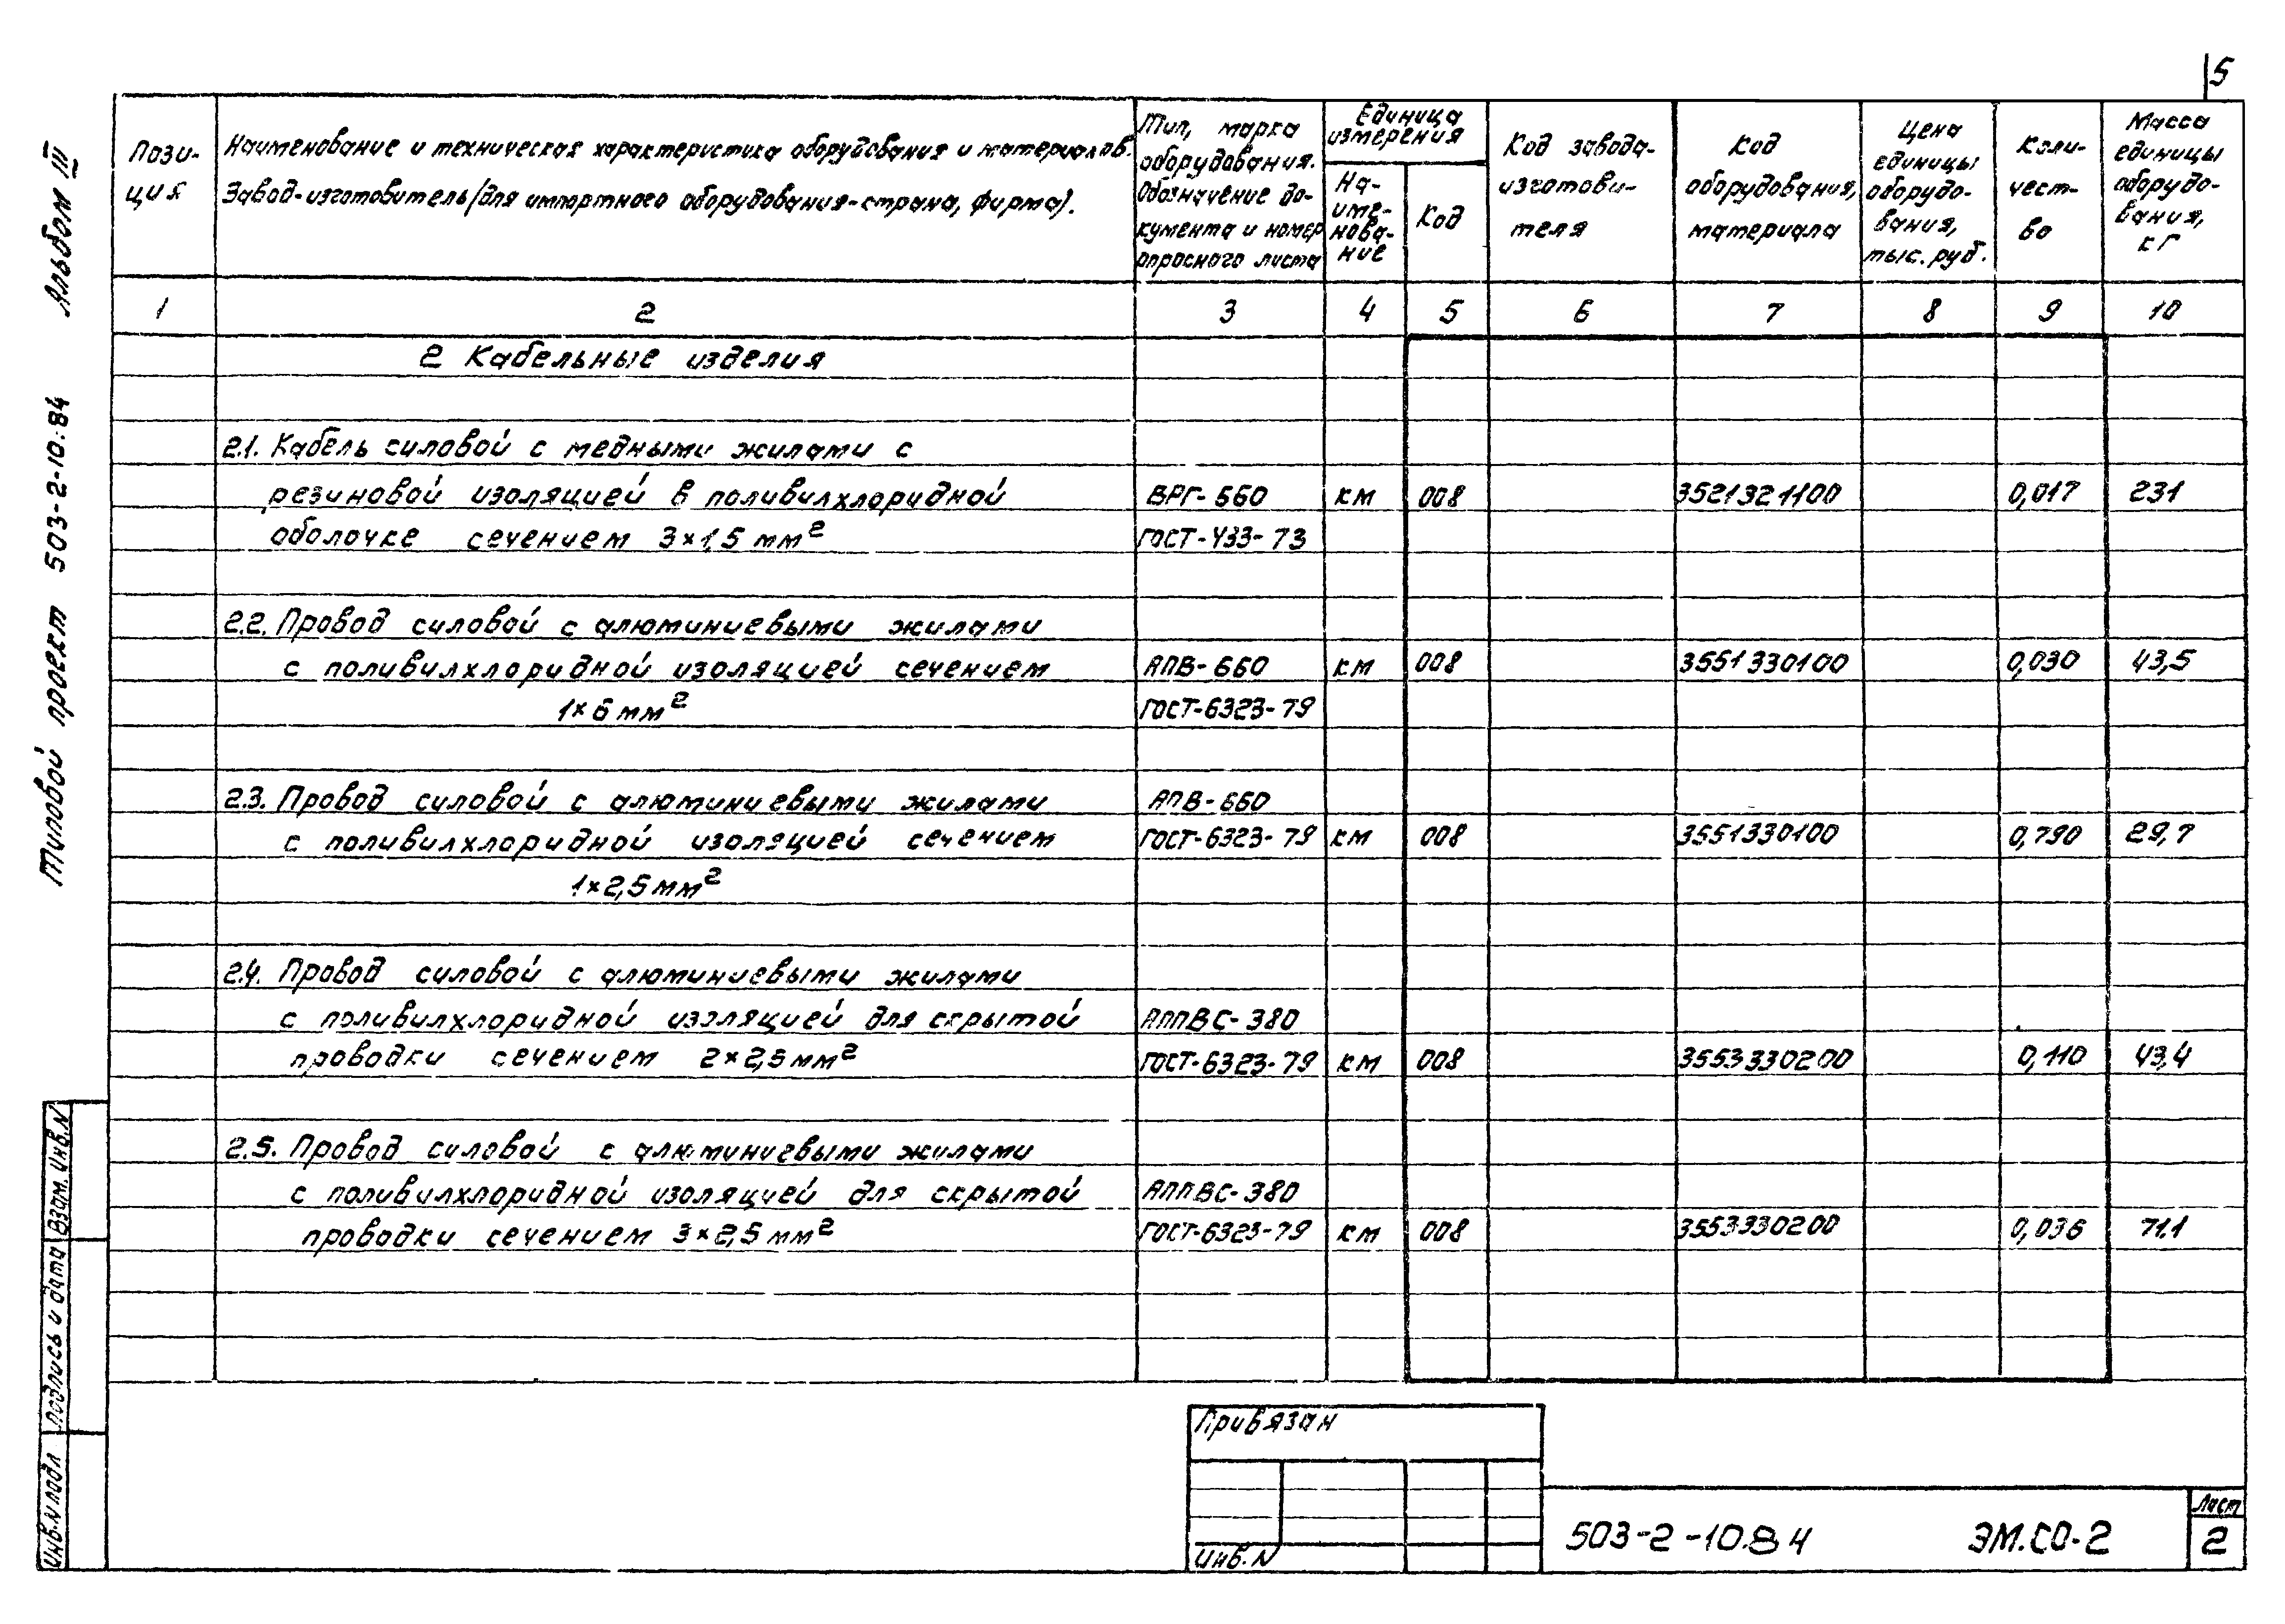 5
Альбом III
Типовой проект 503-2-10.84
Пози-
ция
Наименование и техническая характеристика оборудования и материалов.
Завод-изготовитель/для импортного оборудования-страна, фирма).
Тип, марка
оборудования.
Обозначение до-
кумента и номер
опросного листа
Единица
измерения
На-
име-
нова-
ние
Код
Код завода-
изготови-
теля
Код
оборудования,
материала
Цена
единицы
оборудо-
вания,
тыс. руб.
Коли-
чест-
во
Масса
единицы
оборудо-
вания,
кг
1 2 3 4 5 6 7 8 9 10
2 Кабельные изделия
2.1. Кабель силовой с медными жилами с
резиновой изоляцией в поливилхлоридной ВРГ-660 км 008 3521321100 0,017 231
оболочке сечением 3×1,5 мм² ГОСТ-433-73
2.2. Провод силовой с алюминиевыми жилами
с поливилхлоридной изоляцией сечением АПВ-660 км 008 3551330100 0,030 43,5
1×6 мм² ГОСТ-6323-79
2.3. Провод силовой с алюминиевыми жилами АПВ-660
с поливилхлоридной изоляцией сечением ГОСТ-6323-79 км 008 3551330100 0,790 29,7
1×2,5 мм²
2.4. Провод силовой с алюминиевыми жилами
с поливилхлоридной изоляцией для скрытой АППВС-380
проводки сечением 2×2,5 мм² ГОСТ-6323-79 км 008 3553330200 0,110 43,4
2.5. Провод силовой с алюминиевыми жилами
с поливилхлоридной изоляцией для скрытой АППВС-380
проводки сечением 3×2,5 мм² ГОСТ-6323-79 км 008 3553330200 0,036 71.1
Взам. инв. N
Подпись и дата
Инв. N подл
Привязан
Инв. N
503-2-10.84 ЭМ.СО-2
Лист
2